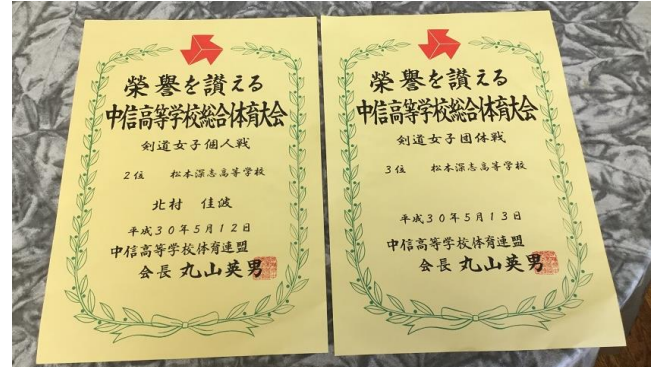 榮誉を讃える
中信高等学校総合体育大会
剣道女子個人戦
2位 松本深志高等学校
北村 佳波
平成30年5月12日
中信高等学校体育連盟
会長 丸山英男
榮誉を讃える
中信高等学校総合体育大会
剣道女子団体戦
3位 松本深志高等学校
平成30年5月13日
中信高等学校体育連盟
会長 丸山英男